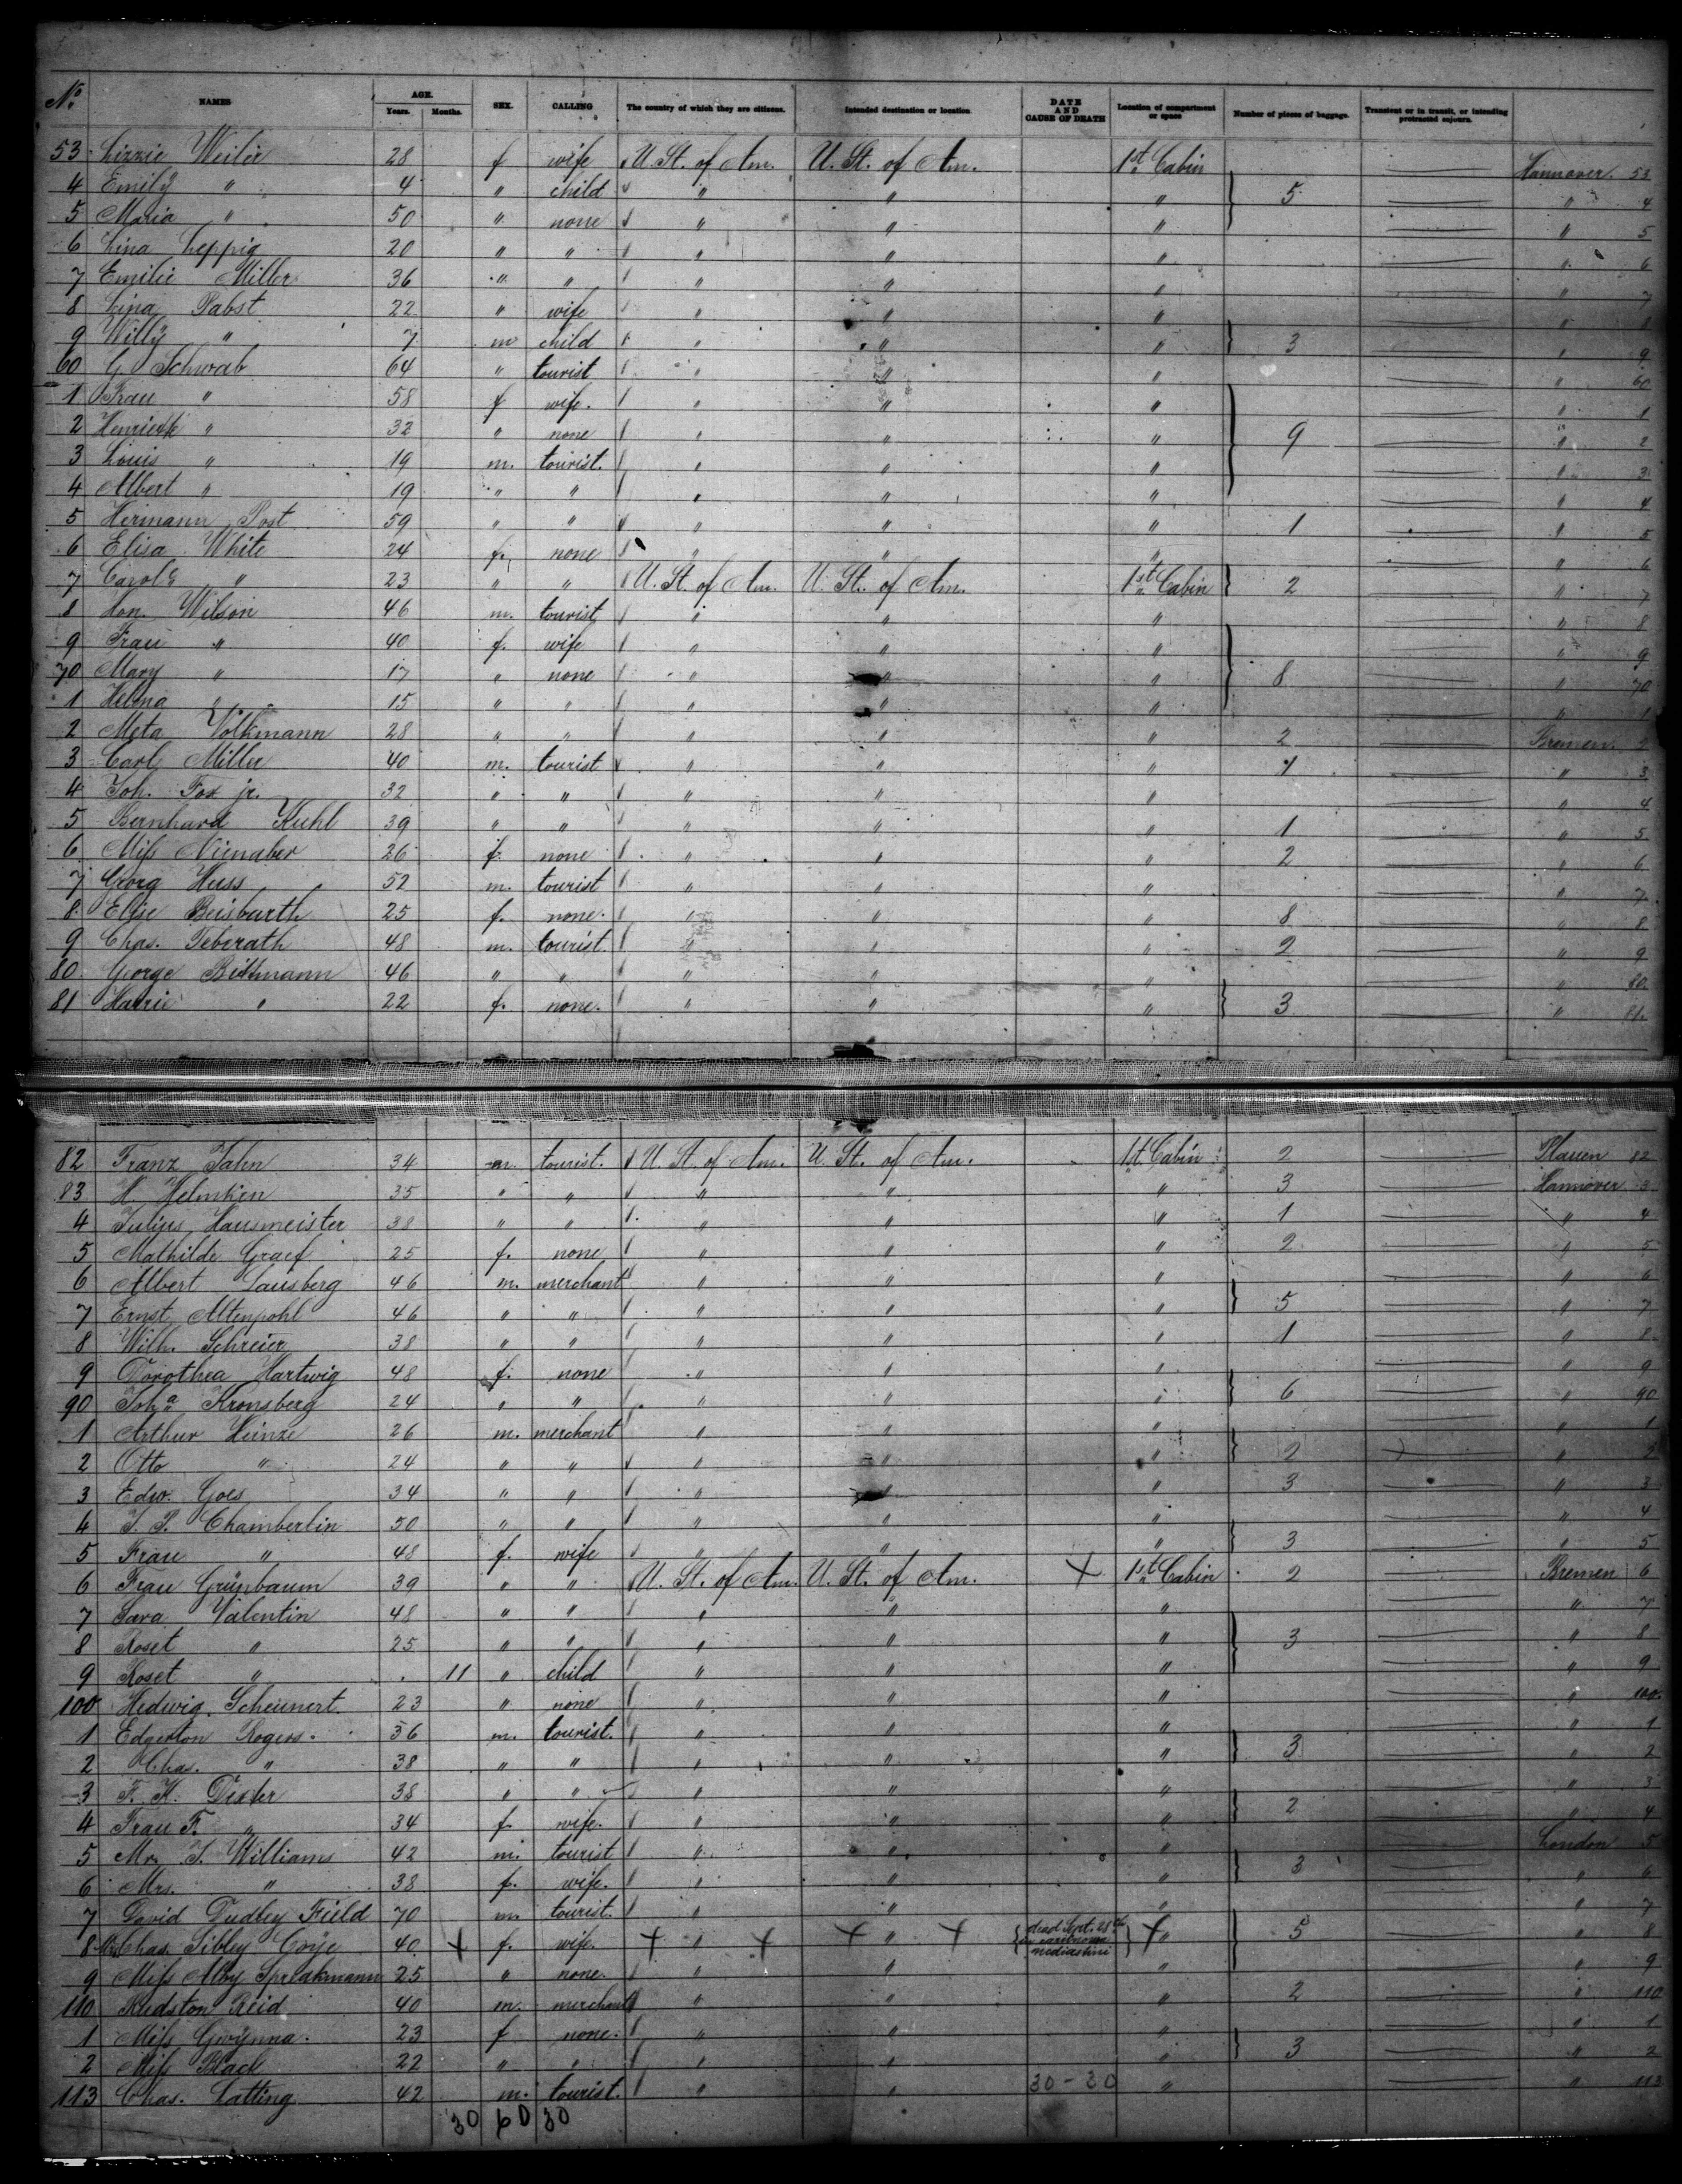 No. NAMES AGE. Years. Months. SEX. CALLING The country of which they are citizens. Intended destination or location. DATE AND CAUSE OF DEATH Location of compartment or space Number of pieces of baggage. Transient or in transit, or intending protracted sojourn.
53 Lizzie Weiler 28 f wife U. St. of Am. U. St. of Am. 1st Cabin Hannover. 53
4 Emily " 4 " child " " " 5 " 4
5 Maria " 50 " none " " " " 5
6 Lina Leppig 20 " " " " " " 6
7 Emilie Miller 36 " " " " " " 7
8 Lina Pabst 22 " wife " " " " 8
9 Willy " 7 m child " " " 3 " 9
60 G. Schwab 64 " tourist " " " " 60
1 Frau " 58 f wife. " " " " 1
2 " 32 " none " " " 9 " 2
3 Louis " 19 m. tourist. " " " " 3
4 Albert " 19 " " " " " " 4
5 Hermann Post 59 " " " " " 1 " 5
6 Elisa White 24 f. none " " " " 6
7 " 23 " " U. St. of Am. U. St. of Am. 1st Cabin 2 " 7
8 Hon. Wilson 46 m. tourist " " " " 8
9 Frau " 40 f. wife " " " " 9
70 Mary " 17 " none " " " 8 " 70
1 Helma " 15 " " " " " " 1
2 Meta Volkmann 28 " " " " " 2 Bremen. 2
3 Carl Miller 40 m. tourist " " " 1 " 3
4 Joh. Fox jr. 32 " " " " " " 4
5 Bernhard Kuhl 39 " " " " " 1 " 5
6 Miss Nienaber 26 f. none " " " 2 " 6
7 Georg Huss 52 m. tourist " " " " 7
8 Elise Beisbarth 25 f. none. " " " 8 " 8
9 Chas. Teberath 48 m. tourist. " " " 2 " 9
80 George Bithmann 46 " " " " " " 80
81 " 22 f. none. " " " 3 " 81
82 Franz Jahn 34 m. tourist. U. St. of Am. U. St. of Am. 1st Cabin 2 Plauen 82
83 H. Helmken 35 " " " " " 3 Hannover 3
4 Julius Hausmeister 38 " " " " " 1 " 4
5 Mathilde Graef 25 f. none " " " 2 " 5
6 Albert Lausberg 46 m. merchant " " " " 6
7 Ernst Altenpohl 46 " " " " " 5 " 7
8 Wilh. Schreier 38 " " " " " 1 " 8
9 Dorothea Hartwig 48 f. none " " " " 9
90 Joha Kronsberg 24 " " " " " 6 " 90
1 Arthur Heinze 26 m. merchant " " " " 1
2 Otto " 24 " " " " " 2 " 2
3 Edw. Goes 34 " " " " " 3 " 3
4 J. P. Chamberlin 50 " " " " " " 4
5 Frau " 48 f. wife " " " 3 " 5
6 Frau Grünbaum 39 " " U. St. of Am. U. St. of Am. X 1st Cabin 2 Bremen 6
7 Sara Valentin 48 " " " " " " 7
8 Roset " 25 " " " " " 3 " 8
9 Roset " 11 " child " " " " 9
100 Hedwig Scheunert. 23 " none " " " " 100.
1 Edgerton Rogers. 36 m. tourist. " " " " 1
2 Chas. " 38 " " " " " 3 " 2
3 F. K. Dexter 38 " " " " " " 3
4 Frau F. " 34 f. wife. " " " 2 " 4
5 Mr. J. Williams 42 m. tourist " " " London 5
6 Mrs. " 38 f. wife. " " " 3 " 6
7 David Dudley Field 70 m. tourist. " " " " 7
8 Mrs. Chas. Sibley 40 X f. wife. X " X X " X dead Sept. 28th by carcinoma mediastini X " 5 " 8
9 Miss Spreakmann 25 " none. " " " " 9
110 Reid 40 m. merchant " " " 2 " 110
1 Miss Gwynna. 23 f none. " " " " 1
2 Miss Black 22 " " " " " 3 " 2
113 Chas. Latting 42 m. tourist. " " 30 - 30 " " 113
30 60 30